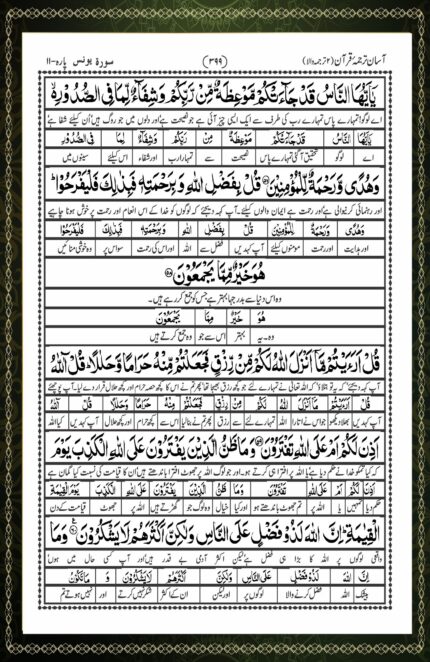 آسان ترجمۂ قرآن (۲ ترجمہ والا) (۳۹۹) سورة یونس پارہ-۱۱
يٰۤاَيُّهَا النَّاسُ قَدْ جَآءَتْكُمْ مَّوْعِظَةٌ مِّنْ رَّبِّكُمْ وَشِفَآءٌ لِّمَا فِى الصُّدُوْرِ ۙ
اے لوگو! تمہارے پاس تمہارے رب کی طرف سے ایک ایسی چیز آئی ہے جو نصیحت ہے اور دلوں میں جو روگ ہیں اُن کیلئے شفا ہے
يٰۤاَيُّهَا النَّاسُ قَدْ جَآءَتْكُمْ مَّوْعِظَةٌ مِّنْ رَّبِّكُمْ وَشِفَآءٌ لِّمَا فِى الصُّدُوْرِ
اے لوگو تحقیق آگئی تمہارے پاس نصیحت سے تمہارا رب اور شفاء اس کیلئے سینوں میں
وَهُدًى وَّرَحْمَةٌ لِّلْمُؤْمِنِيْنَ ۵۷ قُلْ بِفَضْلِ اللّٰهِ وَبِرَحْمَتِهٖ فَبِذٰلِكَ فَلْيَفْرَحُوْا ؕ
اور رہنمائی کرنیوالی ہے اور رحمت ہے ایمان والوں کیلئے۔ آپ کہہ دیجئے کہ لوگوں کو خدا کے اس انعام اور رحمت پر خوش ہونا چاہیے
وَهُدًى وَّرَحْمَةٌ لِّلْمُؤْمِنِيْنَ قُلْ بِفَضْلِ اللّٰهِ وَبِرَحْمَتِهٖ فَبِذٰلِكَ فَلْيَفْرَحُوْا
اور ہدایت اور رحمت مومنوں کیلئے آپ کہدیں فضل سے اللہ اور اس کی رحمت سو اس پر وہ خوشی منائیں
هُوَ خَيْرٌ مِّمَّا يَجْمَعُوْنَ ۵۸
وہ اس دنیا سے بدرجہا بہتر ہے جس کو جمع کر رہے ہیں۔
هُوَ خَيْرٌ مِّمَّا يَجْمَعُوْنَ
وہ۔یہ بہتر اس سے جو وہ جمع کرتے ہیں
قُلْ اَرَءَيْتُمْ مَّاۤ اَنْزَلَ اللّٰهُ لَكُمْ مِّنْ رِّزْقٍ فَجَعَلْتُمْ مِّنْهُ حَرَامًا وَّحَلٰلًا ؕ قُلْ آٰللّٰهُ
آپ کہہ دیجئے کہ یہ تو بتلاؤ کہ اللہ تعالیٰ نے تمہارے لئے جو کچھ رزق بھیجا تھا پھر تم نے اس کا کچھ حصہ حرام اور کچھ حلال قرار دے لیا۔ آپ پوچھئے
قُلْ اَرَءَيْتُمْ مَّاۤ اَنْزَلَ اللّٰهُ لَكُمْ مِّنْ رِّزْقٍ فَجَعَلْتُمْ مِّنْهُ حَرَامًا وَّحَلٰلًا قُلْ آٰللّٰهُ
آپ کہدیں بھلا دیکھو جو اس نے اتارا اللہ تمہارے لئے سے رزق پھر تم نے بنالیا اس سے کچھ حرام اور کچھ حلال آپ کہدیں کیا اللہ
اَذِنَ لَكُمْ اَمْ عَلَى اللّٰهِ تَفْتَرُوْنَ ۵۹ وَمَا ظَنُّ الَّذِيْنَ يَفْتَرُوْنَ عَلَى اللّٰهِ الْكَذِبَ يَوْمَ
کہ کیا تمکو خدا نے حکم دیا ہے یا اللہ پر افترا ہی کرتے ہو۔ اور جو لوگ اللہ پر جھوٹ افترا باندھتے ہیں اُن کا قیامت کی نسبت کیا گمان ہے
اَذِنَ لَكُمْ اَمْ عَلَى اللّٰهِ تَفْتَرُوْنَ وَمَا ظَنُّ الَّذِيْنَ يَفْتَرُوْنَ عَلَى اللّٰهِ الْكَذِبَ يَوْمَ الْقِيٰمَةِ
حکم دیا تمہیں یا اللہ پر تم جھوٹ باندھتے ہو اور کیا خیال وہ لوگ جو گھڑتے ہیں اللہ پر جھوٹ قیامت کے دن
الْقِيٰمَةِ ؕ اِنَّ اللّٰهَ لَذُوْ فَضْلٍ عَلَى النَّاسِ وَلٰكِنَّ اَكْثَرَهُمْ لَا يَشْكُرُوْنَ ۶۰ وَمَا
واقعی لوگوں پر اللہ کا بڑا ہی فضل ہے لیکن اکثر آدمی بے قدر ہیں اور آپ کسی حال میں ہوں
اِنَّ اللّٰهَ لَذُوْ فَضْلٍ عَلَى النَّاسِ وَلٰكِنَّ اَكْثَرَهُمْ لَا يَشْكُرُوْنَ وَمَا تَكُوْنُ
بیشک اللہ فضل کرنے والا لوگوں پر اور لیکن ان کے اکثر شکر نہیں کرتے اور نہیں ہوتے تم